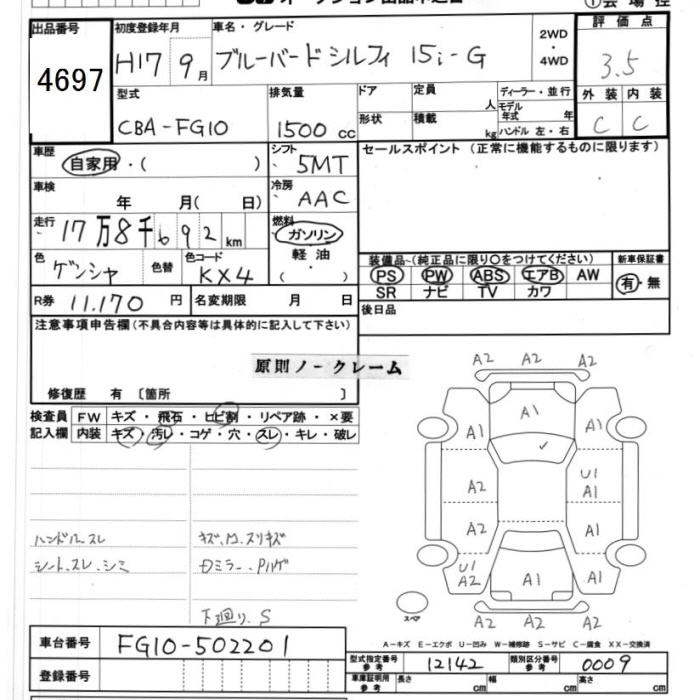 オークション出品申込書 ①会場控
出品番号 初度登録年月 車名・グレード 2WD・4WD 評価点
4697 H17 9月 ブルーバードシルフィ 15i-G 3.5
型式 排気量 ドア 定員 人 ディーラー・並行 外装 内装
CBA-FG10 1500 cc 形状 積載 kg モデル年式 年 ハンドル 左・右 C C
車歴 自家用・( ) シフト 5MT セールスポイント (正常に機能するものに限ります)
車検 年 月( 日) 冷房 AAC
走行 17万8千692km 燃料 ガソリン・軽油・( )
色 ゲンシャ 色替 色コード KX4 装備品~(純正品に限り○をつけてください) 新車保証書
PS PW ABS エアB AW 有・無
SR ナビ TV カワ
R券 11.170 円 名変期限 月 日 後日品
注意事項申告欄(不具合内容等は具体的に記入して下さい)
原則ノークレーム
修復歴 有 〔箇所 〕
検査員 FW キズ・飛石・ヒビ割・リペア跡・×要
記入欄 内装 キズ・汚レ・コゲ・穴・スレ・キレ・破レ
ハンドルスレ
シート.スレ.シミ
下廻り.S
A2 A2 A2
A1 A1 A1
A2 U1 A1
A2 A1
U1 A2 A1 A1
スペア A2 A2 A2
A-キズ E-エクボ U-凹み W-補修跡 S-サビ C-腐食 XX-交換済
車台番号 FG10-502201
型式指定番号 参考 12142 類別区分番号 参考 0009
登録番号
車庫証明用 参考 長さ cm 幅 cm 高さ cm